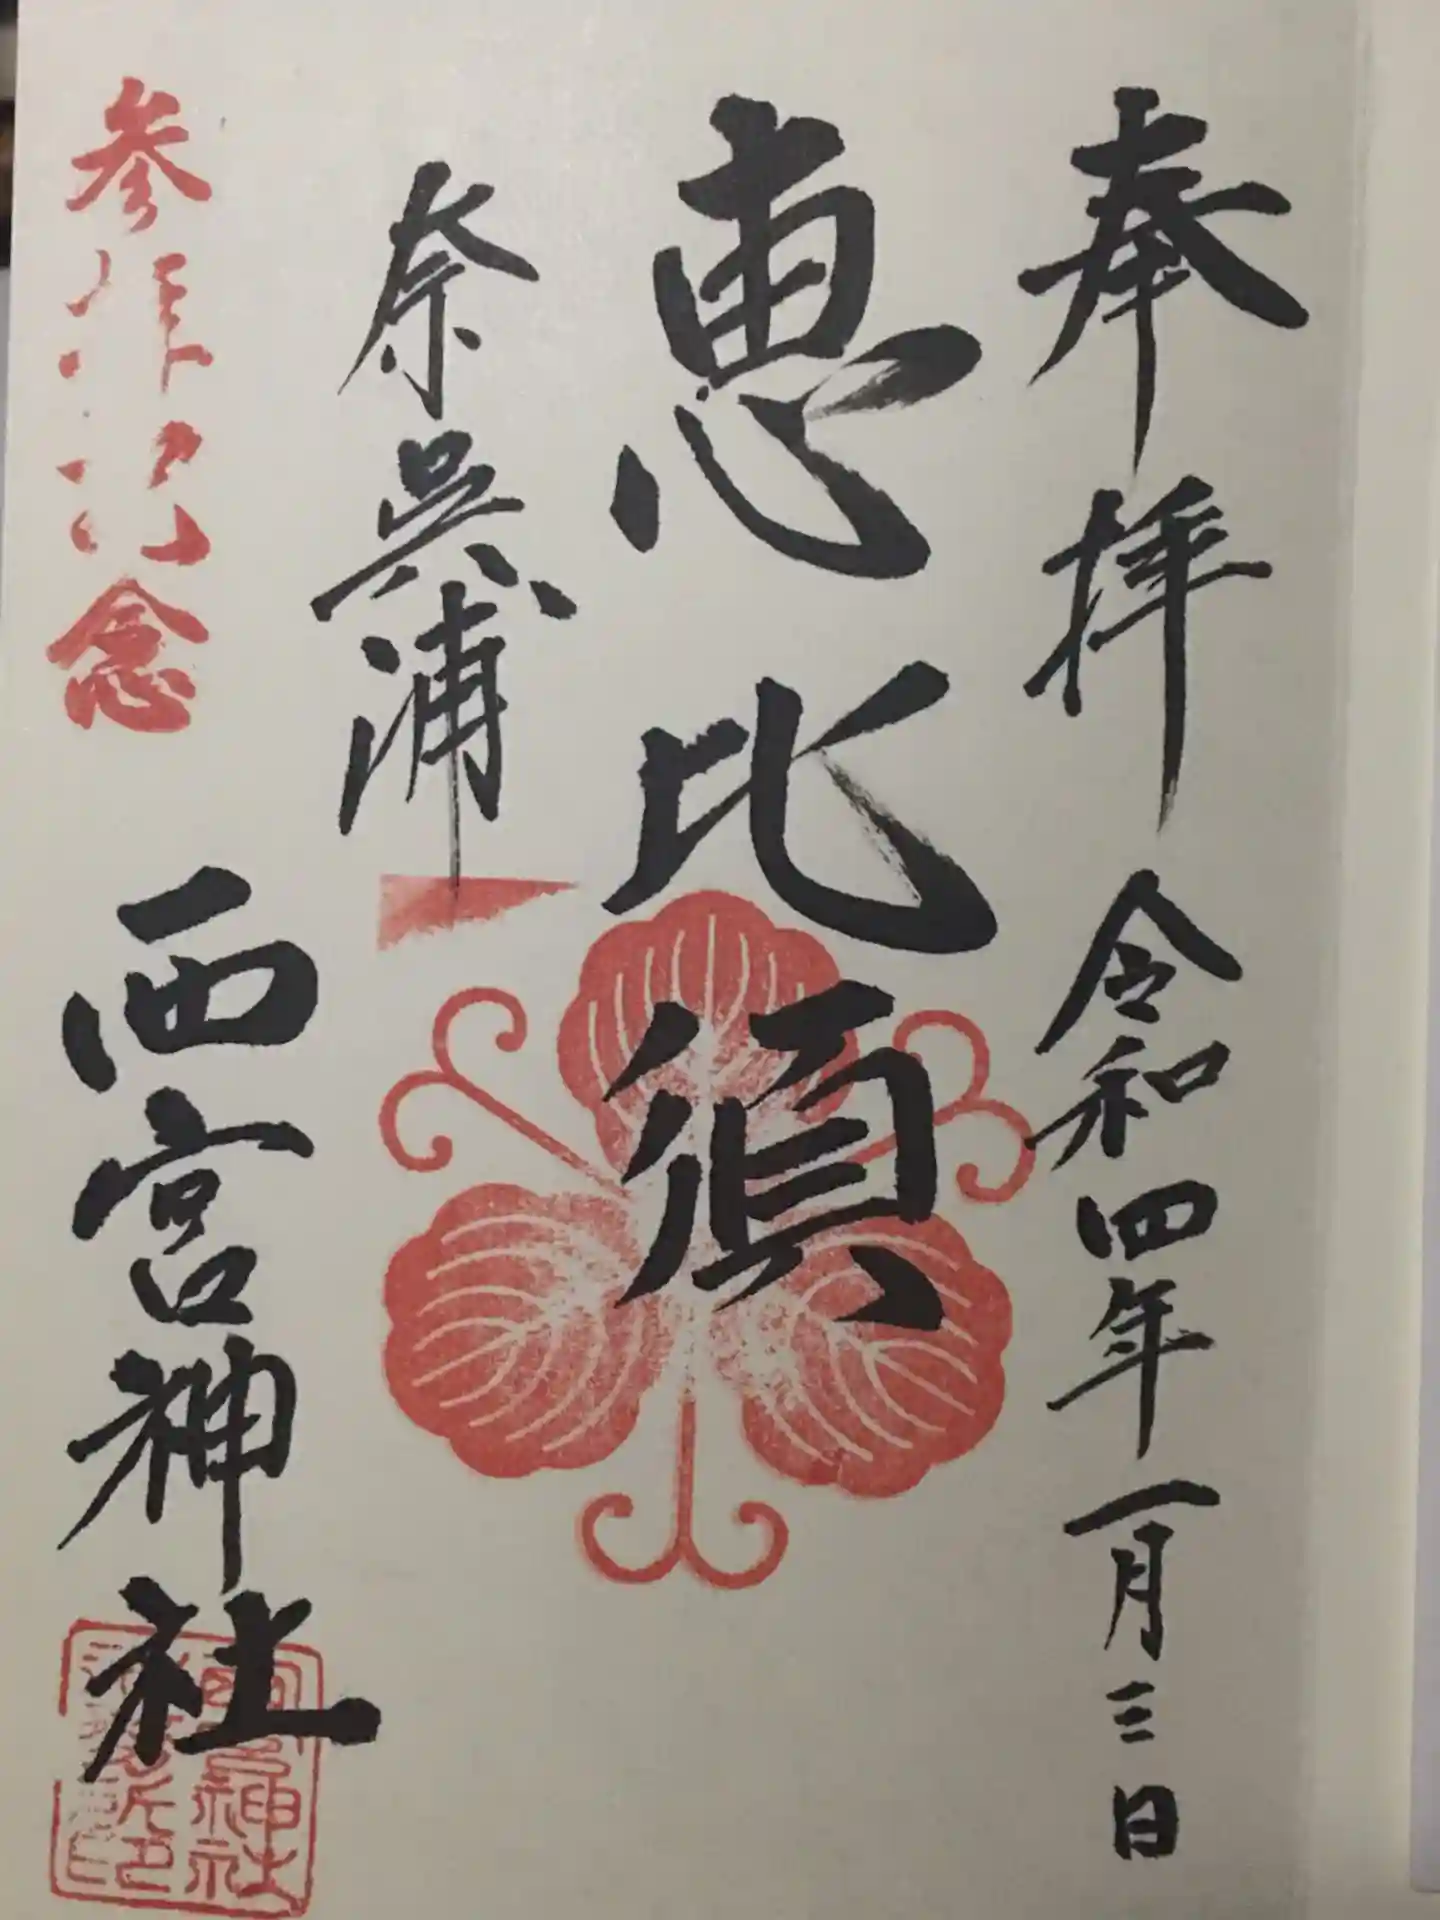 奉拝 令和四年一月三日
恵比須
奈呉浦
参拝記念
西宮神社